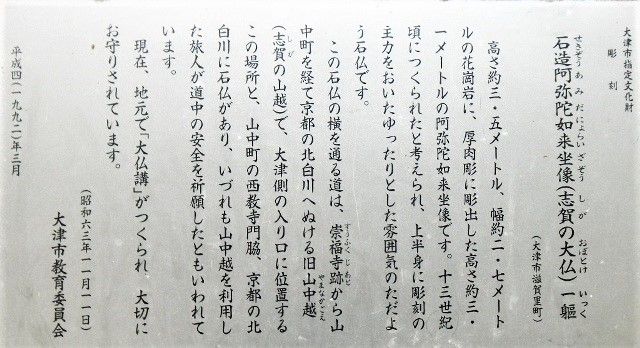 大津市指定文化財
彫刻
せきぞうあみだにょらいざぞう しが おぼとけ いっく
石造阿弥陀如来坐像(志賀の大仏)一軀
(大津市滋賀里町)
高さ約三・五メートル、幅約二・七メート
ルの花崗岩に、厚肉彫に彫出した高さ約三・
一メートルの阿弥陀如来坐像です。十三世紀
頃につくられたと考えられ、上半身に彫刻の
主力をおいたゆったりとした雰囲気のただよ
う石仏です。
そうふくじあと
この石仏の横を通る道は、崇福寺跡から山
やまなかごえ
中町を経て京都の北白川へぬける旧山中越
しが
(志賀の山越)で、大津側の入り口に位置する
この場所と、山中町の西教寺門脇、京都の北
白川に石仏があり、いづれも山中越を利用し
た旅人が道中の安全を祈願したともいわれて
います。
現在、地元で「大仏講」がつくられ、大切に
お守りされています。
(昭和六三年一一月一一日)
大津市教育委員会
平成四(一九九二)年三月